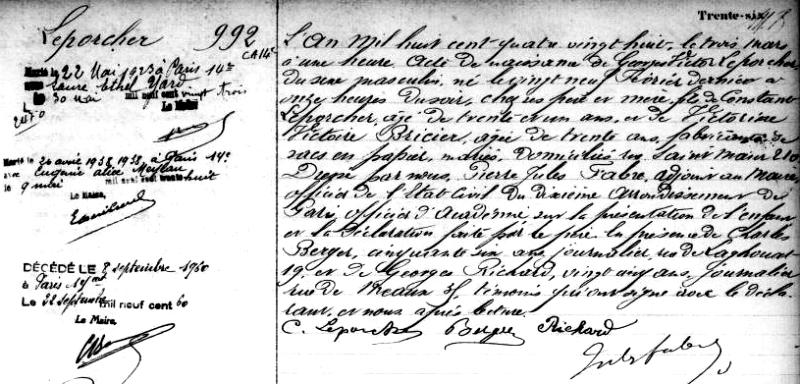 Trente-six
Leporcher 992
L'An mil huit cent quatre vingt huit, le trois mars
à une heure. Acte de naissance de Georges Victor Leporcher
du sexe masculin, né le vingt neuf Février dernier à
onze heures du soir, chez ses père et mère, fils de Constant
Leporcher, âgé de trente et un ans, et de Victorine
Victoire Bricier, âgée de trente ans, fabricants de
sacs en papier, mariés, domiciliés rue Saint Maur 210
Dressé par nous, Pierre Jules Fabre, adjoint au Maire,
officier de l'Etat Civil du dixième arrondissement de
Paris, officier d'Académie sur la présentation de l'enfant
et la déclaration faite par le père en présence de Charles
Berger, cinquante six ans, journalier, rue de Laghouat
19, et de Georges Richard, vingt cinq ans, journalier
rue de Meaux témoins qui ont signé avec le décla-
rant, et nous après lecture.
C. Leporcher Berger Richard
Jules Fabre
Marié le 22 Mai 1923 à Paris 14e
Laure Ethel
30 mai mil neuf cent vingt trois
Le Maire
Marié le 30 avril 1938, 1938, à Paris 14e
avec Eugénie Alice
le 9 mai mil neuf cent trente huit
Le Maire,
DÉCÉDÉ LE 8 septembre 1960
à Paris
Le 22 septembre mil neuf cent 60
Le Maire,